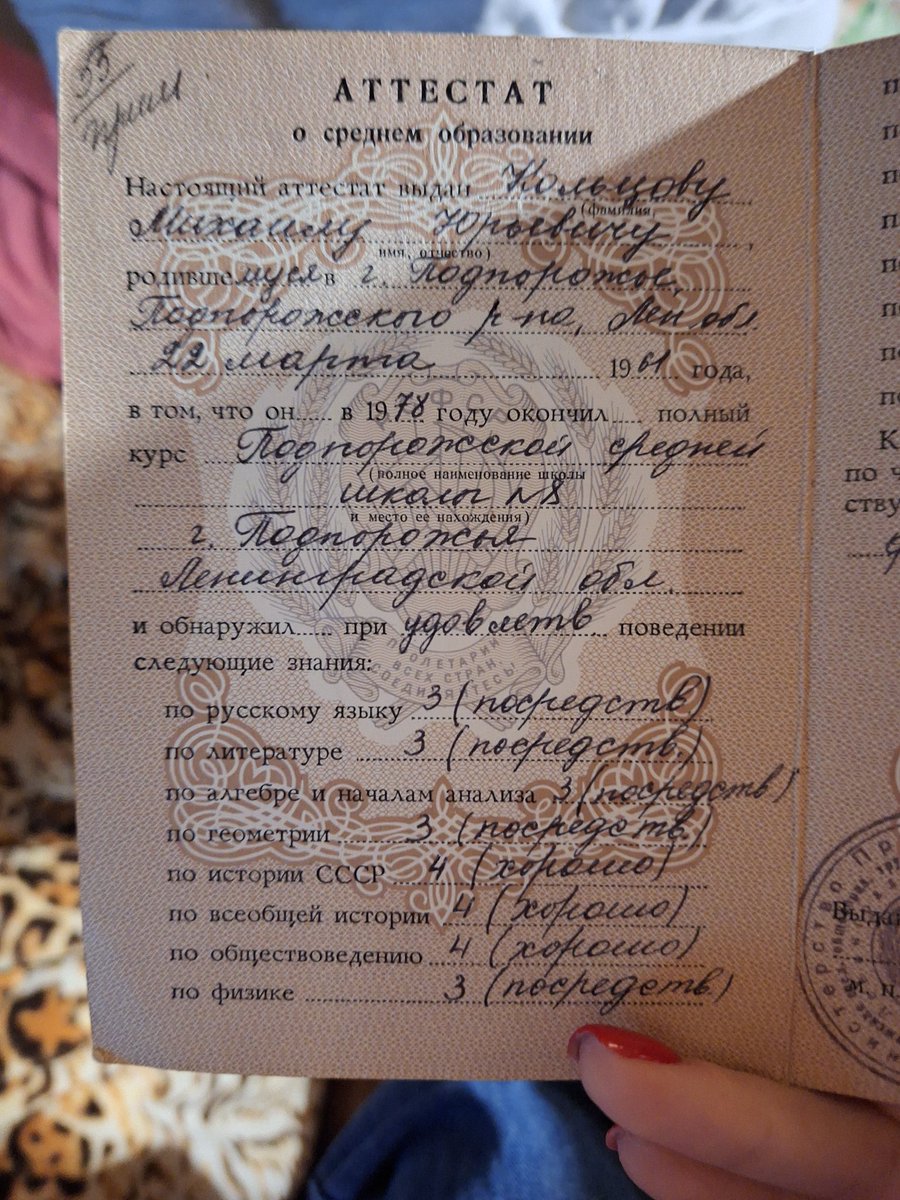 55
АТТЕСТАТ
о среднем образовании
Настоящий аттестат выдан Кольцову
(фамилия,
Михаилу Юрьевичу,
имя, отчество)
родившемуся в г. Подпорожье,
Подпорожского р-на, Лен обл
22 марта 1961 года,
в том, что он в 1978 году окончил полный
курс Подпорожской средней
(полное наименование школы
школы №8
и место ее нахождения)
г. Подпорожья
Ленинградской обл.
и обнаружил при удовлетв. поведении
следующие знания:
по русскому языку 3 (посредств)
по литературе 3 (посредств.)
по алгебре и началам анализа 3 (посредств)
по геометрии 3 (посредств)
по истории СССР 4 (хорошо)
по всеобщей истории 4 (хорошо)
по обществоведению 4 (хорошо)
по физике 3 (посредств)
ПРОЛЕТАРИИ
ВСЕХ СТРАН,
СОЕДИНЯЙТЕСЬ!
К
по ч
ству
Выда
м. п